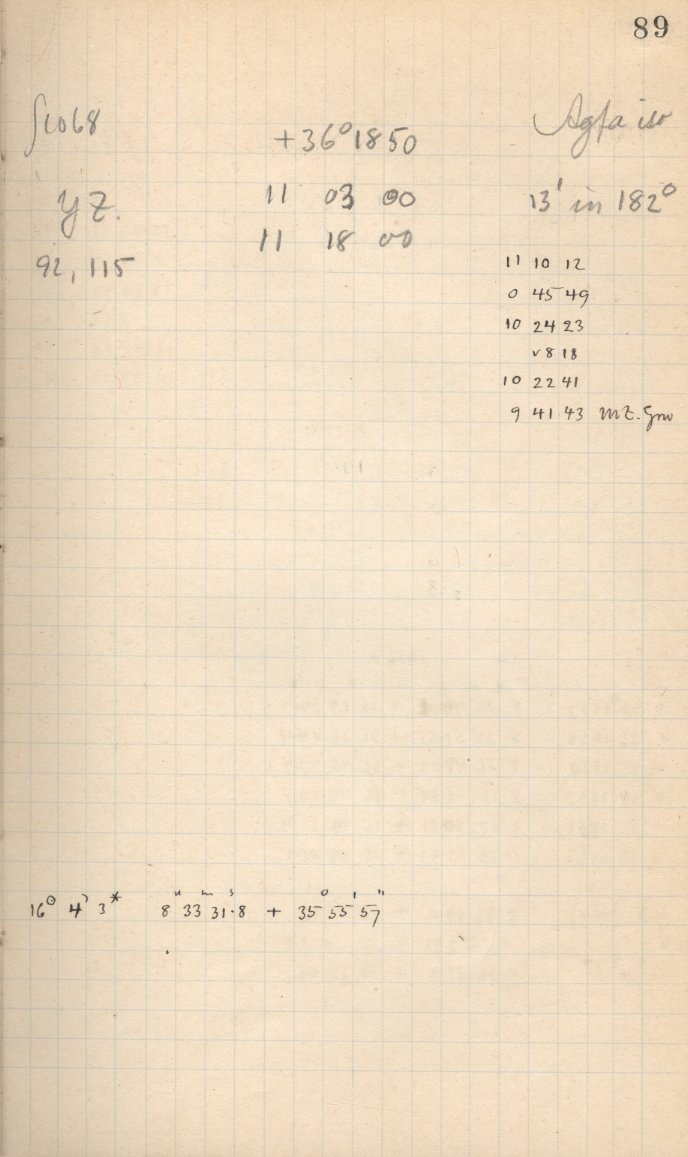 89
∫1068
+36°1850
Agfa iso
YZ.
11 03 00
13' in 182°
11 18 00
92, 115
11 10 12
0 45 49
10 24 23
v 8 18
10 22 41
9 41 43 MZ. Grw
16° 4' 3* 8ʰ 33ᵐ 31ˢ.8 + 35° 55' 57"